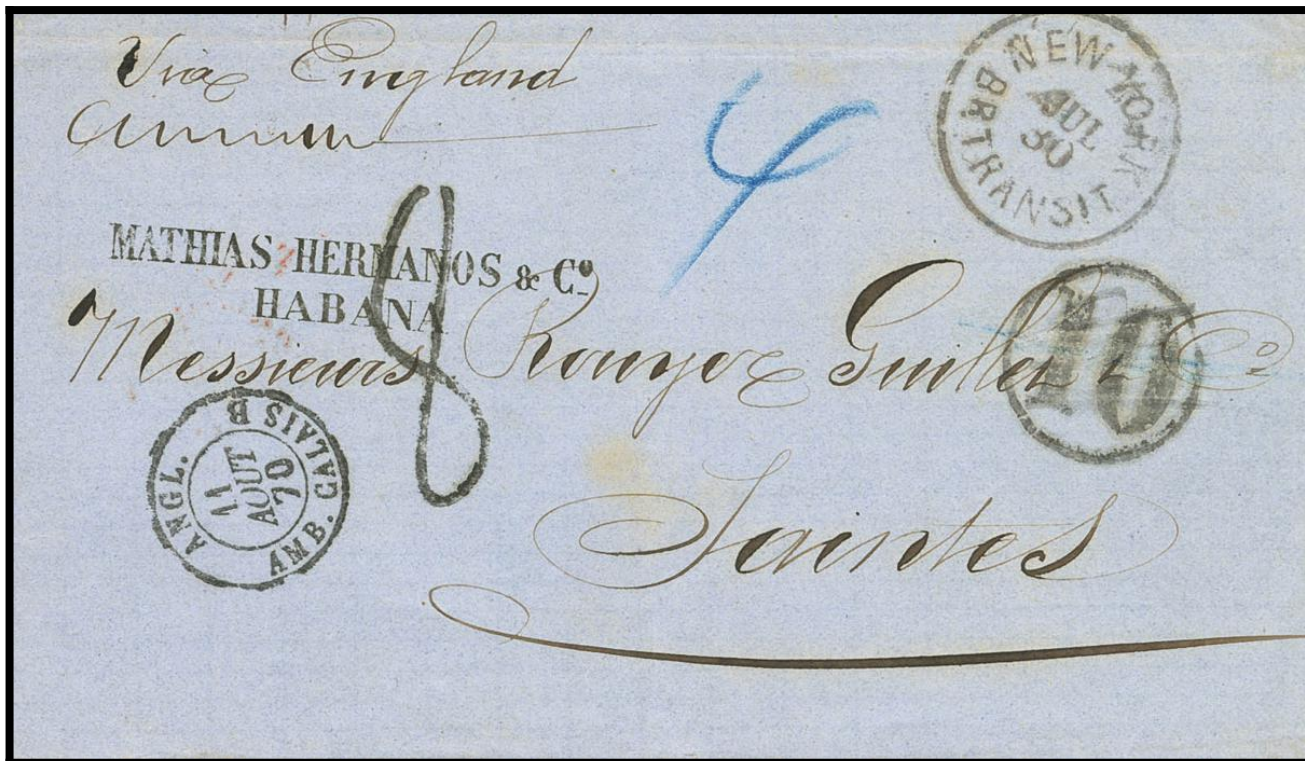 Via England
4
NEW-YORK
JUL
30
BR. TRANSIT
MATHIAS HERMANOS & Cº
HABANA
8
10
Messieurs Rouyer Guillet & Cº
ANGL.
AMB. CALAIS B
11
AOUT
70
Saintes